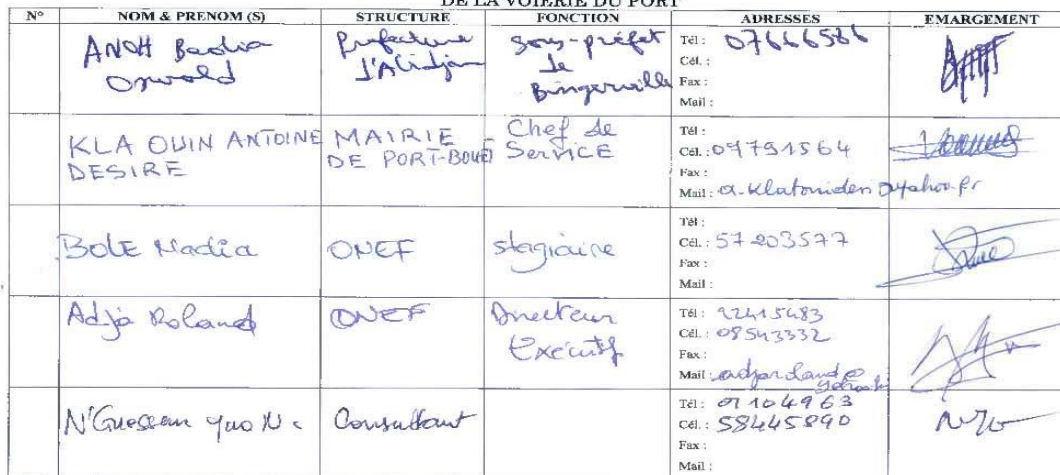 DE LA VOIERIE DU PORT
N° NOM & PRENOM (S) STRUCTURE FONCTION ADRESSES EMARGEMENT
ANOH Badia Oswald Préfecture d'Abidjan Sous-préfet de Bingerville
Tél : 07666586
Cél. :
Fax :
Mail :
KLA OUIN ANTOINE DESIRE MAIRIE DE PORT-BOUËT Chef de SERVICE
Tél :
Cél. : 07791564
Fax :
Mail :
BOLE Nadia ONEF stagiaire
Tél :
Cél. : 57203577
Fax :
Mail :
Adja Roland ONEF Directeur Exécutif
Tél : 22415483
Cél. : 08543332
Fax :
Mail :
N'Guessan Consultant
Tél : 07104963
Cél. : 58445890
Fax :
Mail :